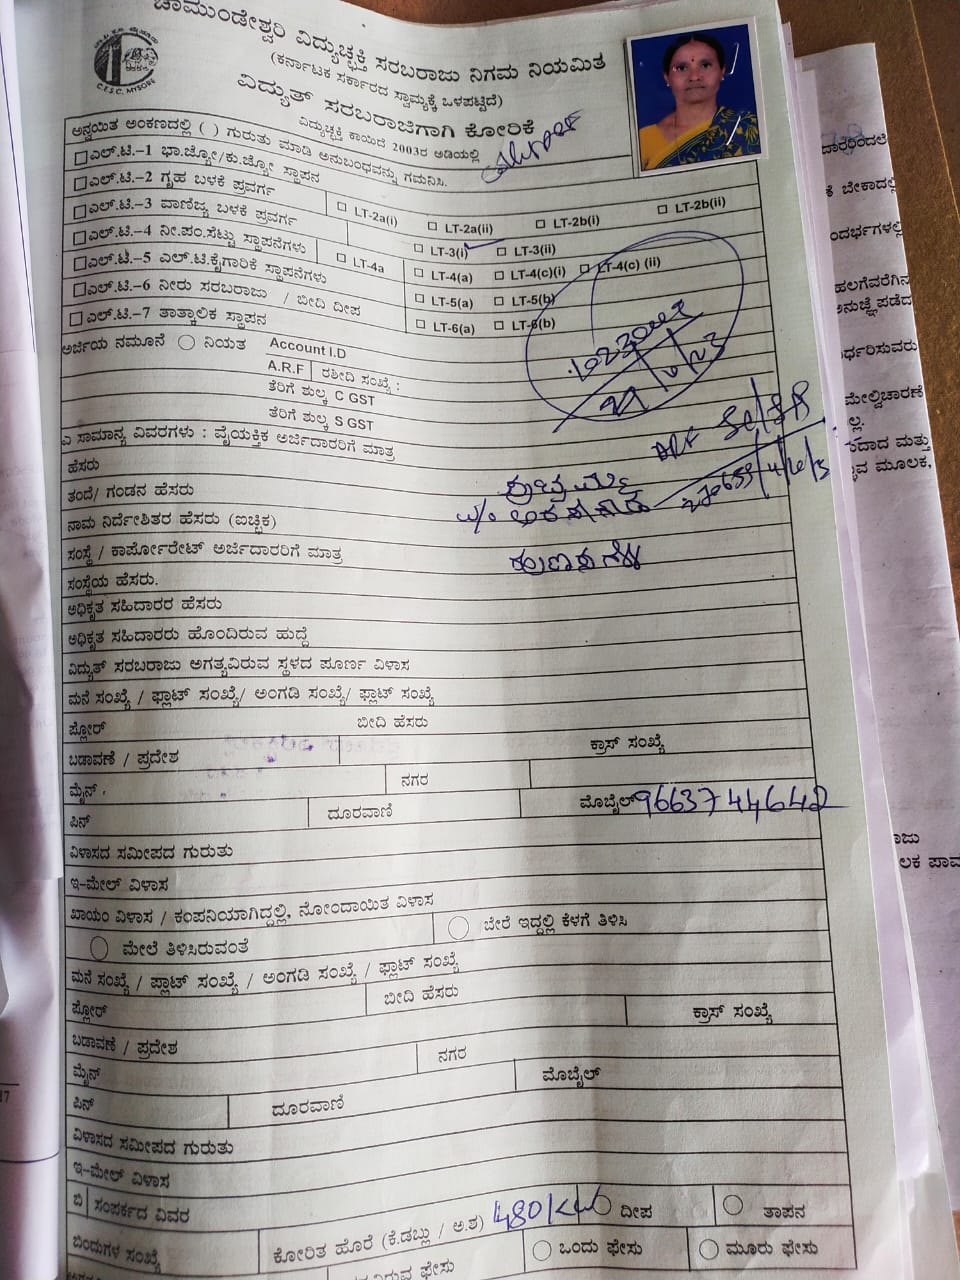 ಚಾಮುಂಡೇಶ್ವರಿ ವಿದ್ಯುಚ್ಛಕ್ತಿ ಸರಬರಾಜು ನಿಗಮ ನಿಯಮಿತ
(ಕರ್ನಾಟಕ ಸರ್ಕಾರದ ಸ್ವಾಮ್ಯಕ್ಕೆ ಒಳಪಟ್ಟಿದೆ)
C.E.S.C. MYSORE
ವಿದ್ಯುತ್ ಸರಬರಾಜಿಗಾಗಿ ಕೋರಿಕೆ
ವಿದ್ಯುಚ್ಛಕ್ತಿ ಕಾಯಿದೆ 2003ರ ಅಡಿಯಲ್ಲಿ
ಅನ್ವಯಿತ ಅಂಕಣದಲ್ಲಿ ( ) ಗುರುತು ಮಾಡಿ ಅನುಬಂಧವನ್ನು ಗಮನಿಸಿ.
ಎಲ್.ಟಿ.–1 ಭಾ.ಜ್ಯೋ/ಕು.ಜ್ಯೋ ಸ್ಥಾಪನ
ಎಲ್.ಟಿ.–2 ಗೃಹ ಬಳಕೆ ಪ್ರವರ್ಗ LT-2a(i) LT-2a(ii) LT-2b(i) LT-2b(ii)
ಎಲ್.ಟಿ.–3 ವಾಣಿಜ್ಯ ಬಳಕೆ ಪ್ರವರ್ಗ LT-3(i) LT-3(ii)
ಎಲ್.ಟಿ.–4 ನೀ.ಪಂ.ಸೆಟ್ಟು ಸ್ಥಾಪನೆಗಳು LT-4a LT-4(a) LT-4(c)(i) LT-4(c) (ii)
ಎಲ್.ಟಿ.–5 ಎಲ್.ಟಿ.ಕೈಗಾರಿಕೆ ಸ್ಥಾಪನೆಗಳು LT-5(a) LT-5(b)
ಎಲ್.ಟಿ.–6 ನೀರು ಸರಬರಾಜು / ಬೀದಿ ದೀಪ LT-6(a) LT-6(b)
ಎಲ್.ಟಿ.–7 ತಾತ್ಕಾಲಿಕ ಸ್ಥಾಪನ
ಅರ್ಜಿಯ ನಮೂನೆ ನಿಯತ Account I.D
A.R.F ರಶೀದಿ ಸಂಖ್ಯೆ :
ತೆರಿಗೆ ಶುಲ್ಕ C GST
ತೆರಿಗೆ ಶುಲ್ಕ S GST
ಎ ಸಾಮಾನ್ಯ ವಿವರಗಳು : ವೈಯಕ್ತಿಕ ಅರ್ಜಿದಾರರಿಗೆ ಮಾತ್ರ
ಹೆಸರು
ತಂದೆ/ ಗಂಡನ ಹೆಸರು
ನಾಮ ನಿರ್ದೇಶಿತರ ಹೆಸರು (ಐಚ್ಛಿಕ)
ಸಂಸ್ಥೆ / ಕಾರ್ಪೋರೇಟ್ ಅರ್ಜಿದಾರರಿಗೆ ಮಾತ್ರ
ಸಂಸ್ಥೆಯ ಹೆಸರು.
ಅಧಿಕೃತ ಸಹಿದಾರರ ಹೆಸರು
ಅಧಿಕೃತ ಸಹಿದಾರರು ಹೊಂದಿರುವ ಹುದ್ದೆ
ವಿದ್ಯುತ್ ಸರಬರಾಜು ಅಗತ್ಯವಿರುವ ಸ್ಥಳದ ಪೂರ್ಣ ವಿಳಾಸ
ಮನೆ ಸಂಖ್ಯೆ / ಫ್ಲಾಟ್ ಸಂಖ್ಯೆ/ ಅಂಗಡಿ ಸಂಖ್ಯೆ/ ಫ್ಲಾಟ್ ಸಂಖ್ಯೆ
ಪ್ಲೋರ್ ಬೀದಿ ಹೆಸರು
ಬಡಾವಣೆ / ಪ್ರದೇಶ ಕ್ರಾಸ್ ಸಂಖ್ಯೆ
ಮೈನ್ ನಗರ
ಪಿನ್ ದೂರವಾಣಿ ಮೊಬೈಲ್ 9663744642
ವಿಳಾಸದ ಸಮೀಪದ ಗುರುತು
ಇ–ಮೇಲ್ ವಿಳಾಸ
ಖಾಯಂ ವಿಳಾಸ / ಕಂಪನಿಯಾಗಿದ್ದಲ್ಲಿ, ನೋಂದಾಯಿತ ವಿಳಾಸ
ಮೇಲೆ ತಿಳಿಸಿರುವಂತೆ ಬೇರೆ ಇದ್ದಲ್ಲಿ ಕೆಳಗೆ ತಿಳಿಸಿ
ಮನೆ ಸಂಖ್ಯೆ / ಪ್ಲಾಟ್ ಸಂಖ್ಯೆ / ಅಂಗಡಿ ಸಂಖ್ಯೆ / ಫ್ಲಾಟ್ ಸಂಖ್ಯೆ
ಪ್ಲೋರ್ ಬೀದಿ ಹೆಸರು ಕ್ರಾಸ್ ಸಂಖ್ಯೆ
ಬಡಾವಣೆ / ಪ್ರದೇಶ ನಗರ
ಮೈನ್ ಮೊಬೈಲ್
ಪಿನ್ ದೂರವಾಣಿ
ವಿಳಾಸದ ಸಮೀಪದ ಗುರುತು
ಇ–ಮೇಲ್ ವಿಳಾಸ
ಬಿ ಸಂಪರ್ಕದ ವಿವರ ದೀಪ ತಾಪನ
ಬಿಂದುಗಳ ಸಂಖ್ಯೆ ಕೋರಿತ ಹೊರೆ (ಕೆ.ಡಬ್ಲು / ಅ.ಶ) ಒಂದು ಫೇಸು ಮೂರು ಫೇಸು